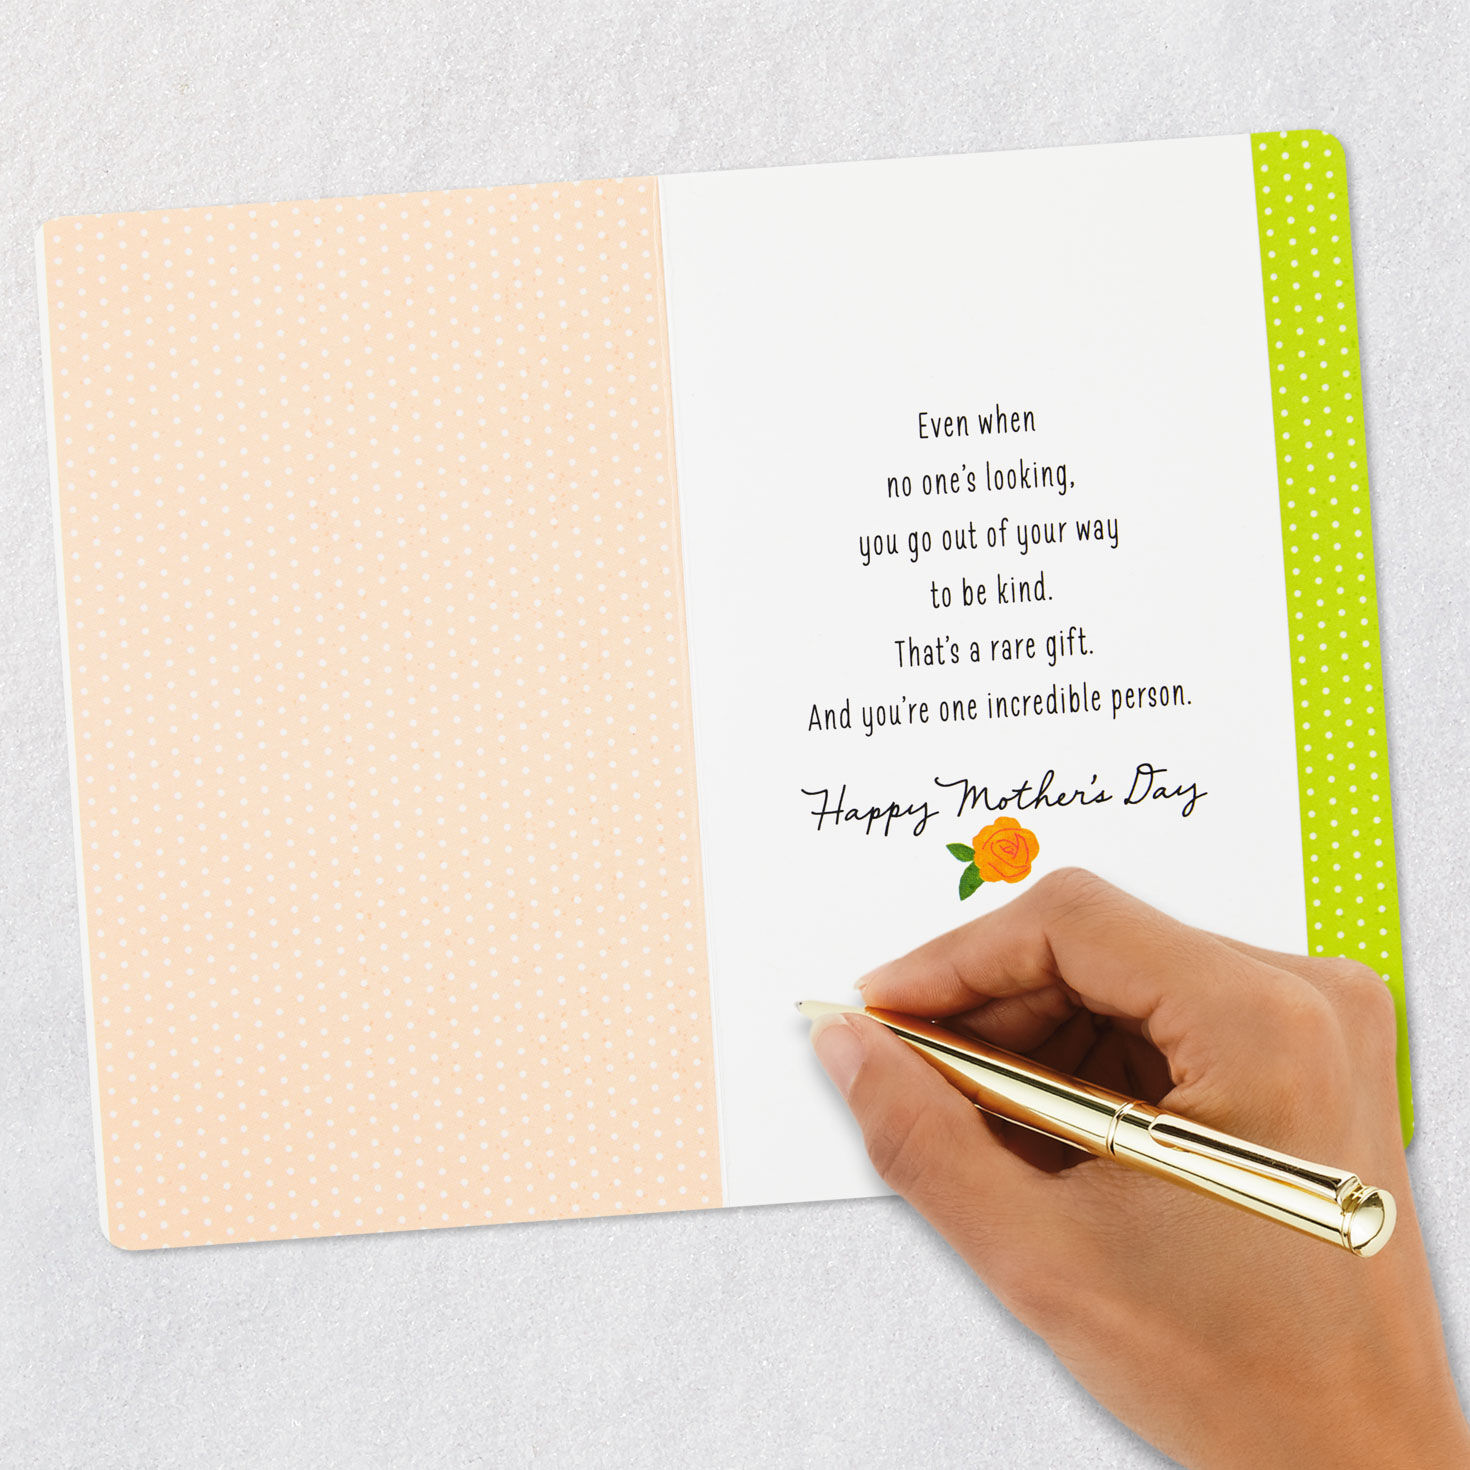 Even when
no one's looking,
you go out of your way
to be kind.
That's a rare gift.
And you're one incredible person.
Happy Mother's Day